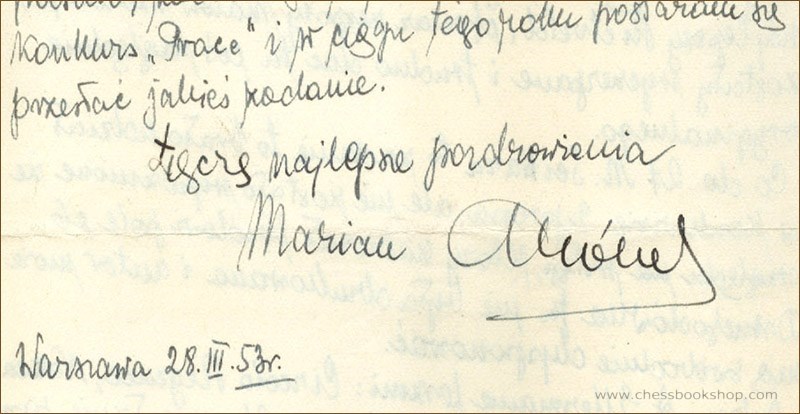 konkurs „Prace” i w ciągu tego roku postaram się
przesłać jakieś zadanie.
Łączę najlepsze pozdrowienia
Marian Wróbel
Warszawa 28.III.53r.
www.chessbookshop.com